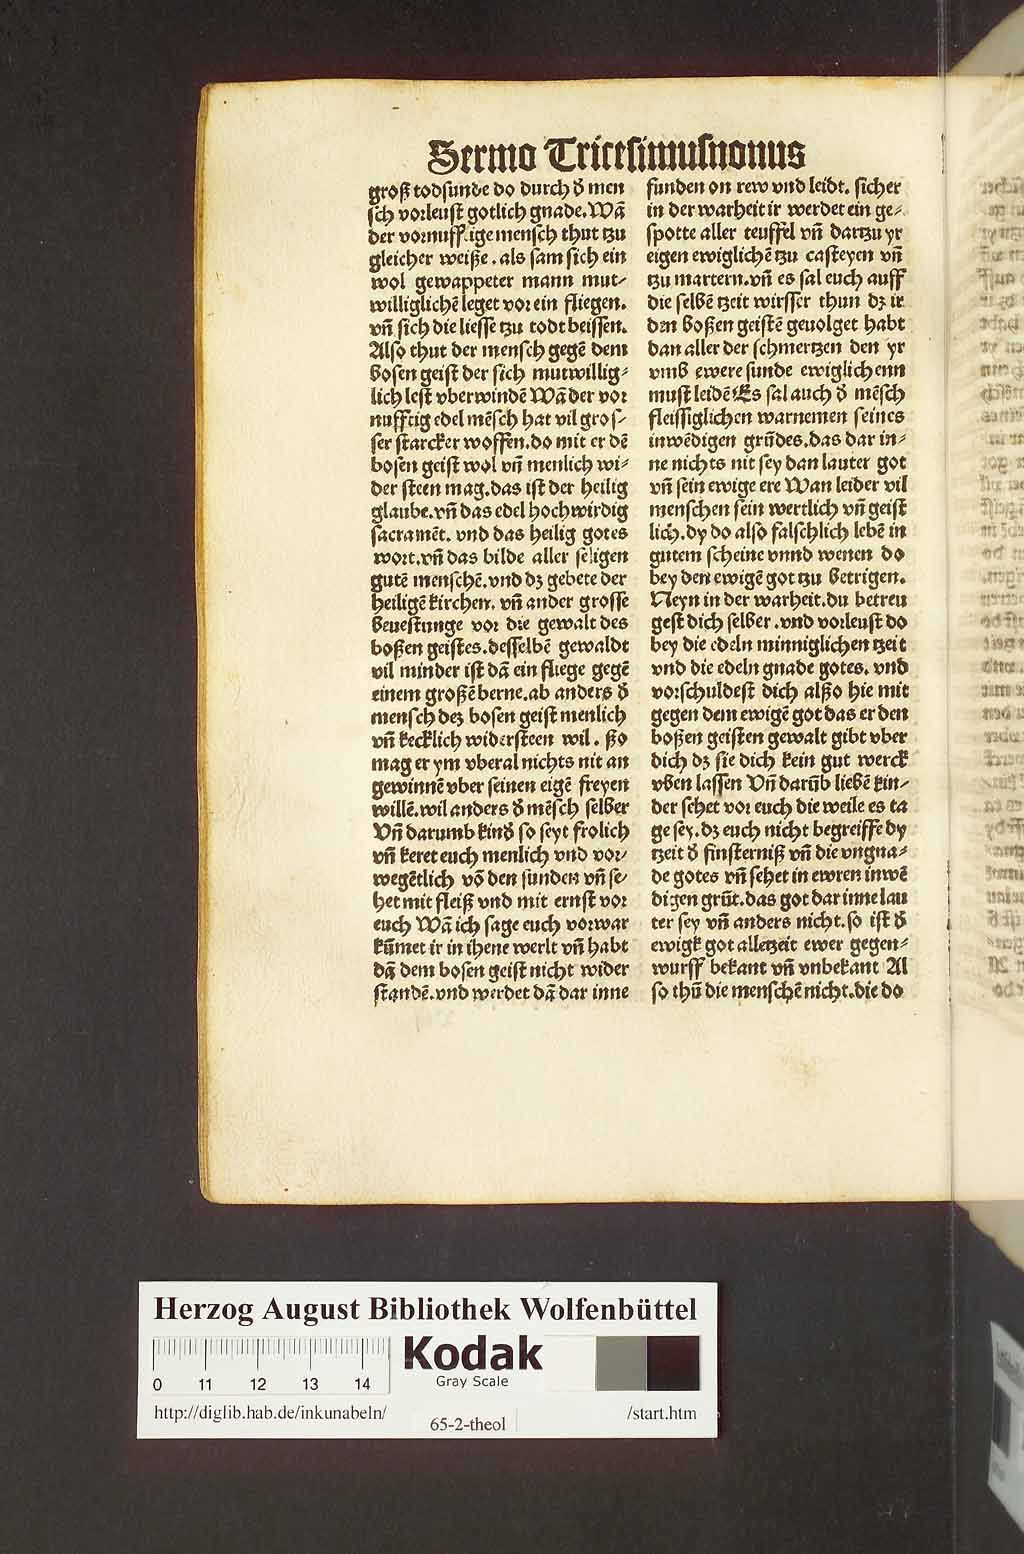 Sermo Tricesimusnonus
groß todsunde do durch d̕ men
sch vorleust gotlich gnade. Wā
der vornufftige mensch thut tzu
gleicher weiße. als sam sich ein
wol gewappeter mann mut-
williglichē leget vor ein fliegen.
vñ sich die liesse tzu todt beissen.
Also thut der mensch gegē dem
bosen geist der sich mutwillig-
lich lest vberwindē Wā der vor
nufftig edel mēsch hat vil gros-
ser starcker woffen. do mit er dē
bosen geist wol vñ menlich wi-
der steen mag. das ist der heilig
glaube. vñ das edel hochwirdig
sacramēt. vnd das heilig gotes
wort. vñ das bilde aller seligen
gutē menschē. vnd dz gebete der
heiligē kirchen. vñ ander grosse
beuestunge vor die gewalt des
boßen geistes. desselbē gewaldt
vil minder ist dā ein fliege gegē
einem großē berne. ab anders d̕
mensch dez bosen geist menlich
vñ kecklich widersteen wil. ßo
mag er ym vberal nichts nit an
gewinnē vber seinen eigē freyen
willē. wil anders d̕ mēsch selber
Vñ darumb kind̕ so seyt frolich
vñ keret euch menlich vnd vor-
wegētlich vō den sunden vñ se-
het mit fleiß vnd mit ernst vor
euch Wā ich sage euch vorwar
kūmet ir in ihene werlt vñ habt
dā dem bosen geist nicht wider
standē. vnd werdet dā dar inne
funden on rew vnd leidt. sicher
in der warheit ir werdet ein ge-
spotte aller teuffel vñ dartzu yr
eigen ewiglichē tzu casteyen vñ
tzu martern. vñ es sal euch auff
die selbē tzeit wirsser thun dz ir
den boßen geistē geuolget habt
dan aller der schmertzen den yr
vmb ewere sunde ewiglichenn
must leidē Es sal auch d̕ mēsch
fleissiglichen warnemen seines
inwēdigen grūdes. das dar in-
ne nichts nit sey dan lauter got
vñ sein ewige ere Wan leider vil
menschen sein wertlich vñ geist
lich. dy do also falschlich lebē in
gutem scheine vnnd wenen do
bey den ewigē got tzu betrigen.
Neyn in der warheit. du betreu
gest dich selber. vnd vorleust do
bey die edeln minniglichen tzeit
vnd die edeln gnade gotes. vnd
vorschuldest dich alßo hie mit
gegen dem ewigē got das er den
boßen geisten gewalt gibt vber
dich dz sie dich kein gut werck
vben lassen Vñ darūb liebē kin-
der sehet vor euch die weile es ta
ge sey. dz euch nicht begreiffe dy
tzeit d̕ finsterniß vñ die vngna-
de gotes vñ sehet in ewren inwē
digen grūt. das got dar inne lau
ter sey vñ anders nicht. so ist d̕
ewigk got alletzeit ewer gegen-
wurff bekant vñ vnbekant Al
so thū die menschē nicht. die do
Herzog August Bibliothek Wolfenbüttel
Kodak
Gray Scale
0 11 12 13 14
http://diglib.hab.de/inkunabeln/
65-2-theol
/start.htm